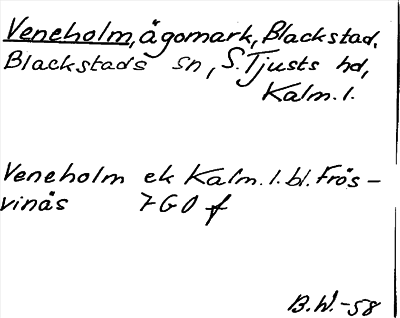 Veneholm, ägomark, Blackstad,
Blackstads sn, S. Tjusts hd,
Kalm. l.
Veneholm ek Kalm. l. bl. Frös-
vinäs 7 G O f
B.W.-58